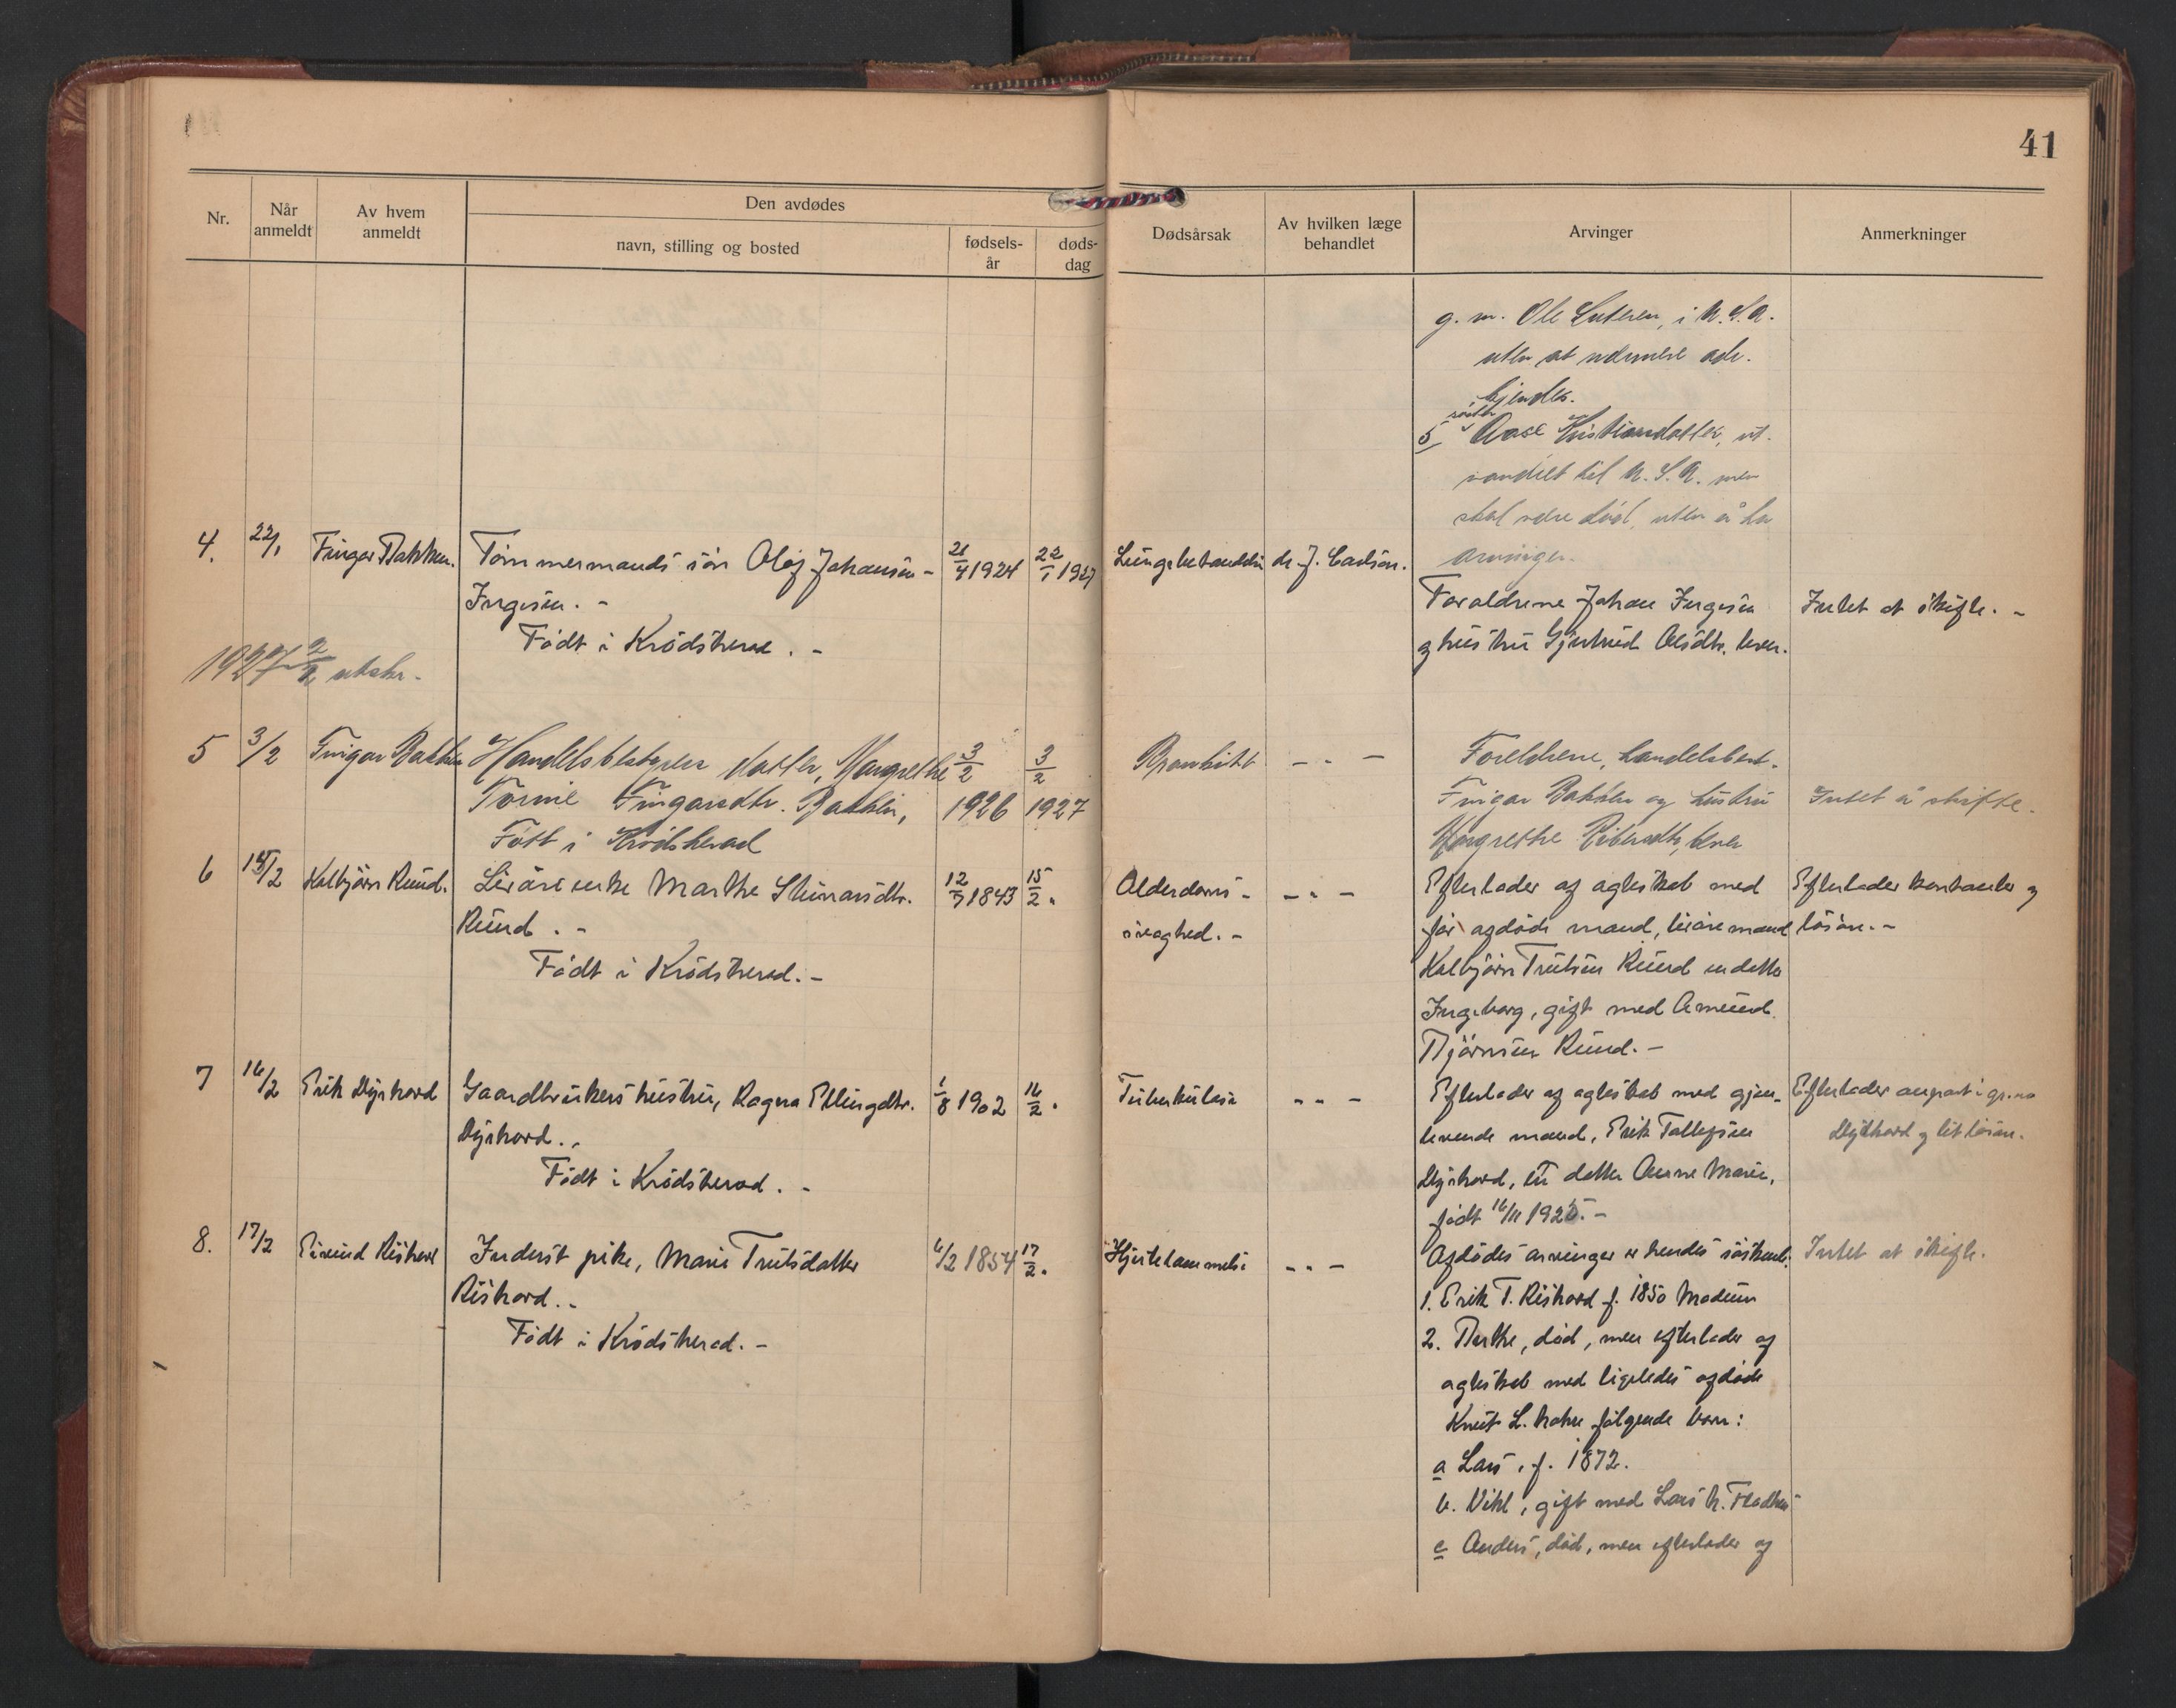 41
Nr.
Når anmeldt
Av hvem anmeldt
Den avdødes
navn, stilling og bosted
fødsels-år
døds-dag
Dødsårsak
Av hvilken læge behandlet
Arvinger
Anmerkninger
g. m. Ole Knutsen, i U. S. A.
uten at nærmere adr.
kjendes.
søster
5, Aase Kristiansdatter, ut-
vandret til U. S. A. men
skal være død, uten å ha
arvinger.
4. 22/1 Fingar Bakken. Tømmermands søn Olaf Johansen - 21/4 1924 22/1 1927 Lungebetændelse dr. J. Carlson.
Ingesen. -
Født i Krødsherad. -
Forældrene Johan Ingesen Intet at skifte. -
og hustru Gjertrud Olsdtr. lever.
1927 2/2 utskr.
5 3/2 Fingar Bakken Handelsbestyrers datter, Margrethe 3/2 3/2 Bronkitt - " -
Tomine Fingarsdtr. Bakken, 1926 1927
Født i Krødsherad
Foreldrene, handelsbest.
Fingar Bakken og hustru Intet å skifte.
Margrethe lever
6 15/2 Kolbjørn Ruud. Livøreenke Marthe Steinarsdtr. 12/7 1843 15/2 " Alderdoms- - " -
Ruud. - svaghed. -
Født i Krødsherad. -
Efterlader af ægteskab med Efterlader kontanter og
før afdøde mand, livøremand løsøre. -
Kolbjørn Trulsen Ruud en datter
Ingeborg, gift med Amund
Bjørnsen Ruud. -
7 16/2 Erik Dyrhovd Gaardbrukers hustru, Ragna Ellingsdtr. 1/8 1902 16/2 " Tuberkulose " " -
Dyrhovd. -
Født i Krødsherad. -
Efterlader af ægteskab med gjen- Efterlader anpart i
levende mand, Erik Tollefsen og lit løsøre.
Dyrhovd, en datter Anne Marie,
født 16/11 1925. -
8. 17/2 Eivind Rishovd Inderst pike, Marie Trulsdatter 6/2 1854 17/2 " Hjertelammelse - " -
Rishovd. -
Født i Krødsherad. -
Afdødes arvinger er hendes søskende: Intet at skifte.
1. Erik T. Rishovd f. 1850 Modum
2. Berthe, død, men efterlader af
ægteskab med ligeledes afdøde
Knut L. følgende barn:
a Lars, f. 1872.
b. gift med Lars
c Anders, død, men efterlader af